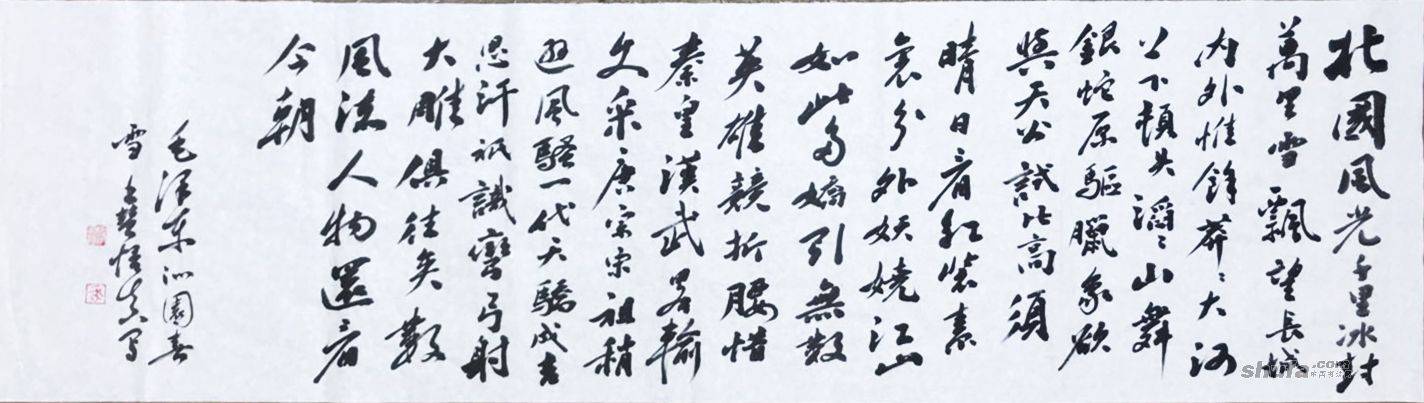 北國風光千里冰封
萬里雪飄望長城
内外惟餘莽々大河
上下頓失滔々山舞
銀蛇原驅臘象欲
與天公試比高須
晴日看紅裝素
裹分外妖嬈江山
如此多嬌引無数
英雄競折腰惜
秦皇漢武畧輸
文采唐宗宋祖稍
遜風騷一代天驕成吉
思汗祇識彎弓射
大雕俱往矣數
風流人物還看
今朝
毛澤東沁園春
雪
shufa.com